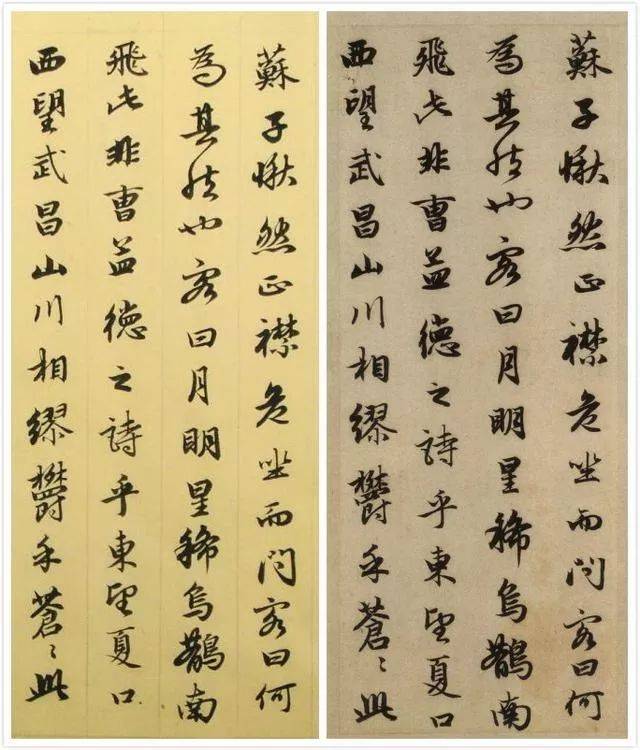 蘇子愀然正襟危坐而問客曰何
為其然也客曰月明星稀烏鵲南
飛此非曹孟德之詩乎東望夏口
西望武昌山川相繆鬱乎蒼〻此
蘇子愀然正襟危坐而問客曰何
為其然也客曰月明星稀烏鵲南
飛此非曹孟德之詩乎東望夏口
西望武昌山川相繆鬱乎蒼〻此